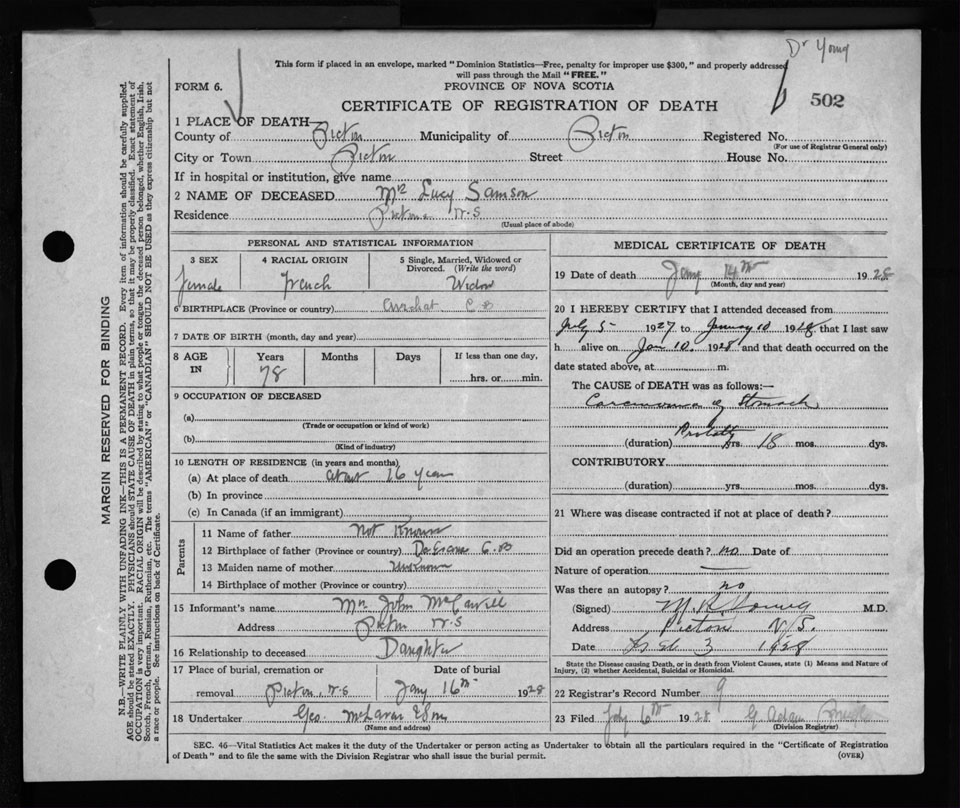 Dr Young
This form if placed in an envelope, marked "Dominion Statistics—Free, penalty for improper use $300," and properly addressed
will pass through the Mail "FREE."
FORM 6.
PROVINCE OF NOVA SCOTIA
CERTIFICATE OF REGISTRATION OF DEATH
502
1 PLACE OF DEATH
County of Pictou Municipality of Pictou Registered No.
(For use of Registrar General only)
City or Town Pictou Street House No.
If in hospital or institution, give name
2 NAME OF DECEASED Mrs Lucy Samson
Residence Pictou N.S
(Usual place of abode)
PERSONAL AND STATISTICAL INFORMATION
3 SEX 4 RACIAL ORIGIN 5 Single, Married, Widowed or Divorced. (Write the word)
female french Widow
6 BIRTHPLACE (Province or country) Arichat C B
7 DATE OF BIRTH (month, day and year)
8 AGE IN Years Months Days If less than one day,
78 hrs. or min.
9 OCCUPATION OF DECEASED
(a)
(Trade or occupation or kind of work)
(b)
(Kind of industry)
10 LENGTH OF RESIDENCE (in years and months)
(a) At place of death about 16 years
(b) In province
(c) In Canada (if an immigrant)
Parents
11 Name of father Not Known
12 Birthplace of father (Province or country) C.B
13 Maiden name of mother Unknown
14 Birthplace of mother (Province or country)
15 Informant's name Mrs John
Address Pictou N.S
16 Relationship to deceased Daughter
17 Place of burial, cremation or Date of burial
removal Pictou, N.S Jany 16th 1928
18 Undertaker Geo. & Son
(Name and address)
MEDICAL CERTIFICATE OF DEATH
19 Date of death Jany 14th 1928
(Month, day and year)
20 I HEREBY CERTIFY that I attended deceased from
July 5 1927 to January 10 1928 that I last saw
h alive on Jan 10. 1928 and that death occurred on the
date stated above, at m.
The CAUSE of DEATH was as follows:—
Carcinoma of Stomach
Probably
(duration) yrs. 18 mos. dys.
CONTRIBUTORY
(duration) yrs. mos. dys.
21 Where was disease contracted if not at place of death?
Did an operation precede death? no Date of
Nature of operation
Was there an autopsy? no
(Signed) Young M.D.
Address Pictou N.S.
Date Feb 3 1928
State the Disease causing Death, or in death from Violent Causes, state (1) Means and Nature of
Injury, (2) whether Accidental, Suicidal or Homicidal.
22 Registrar's Record Number 9
23 Filed 6th 1928 G.
(Division Registrar)
SEC. 46—Vital Statistics Act makes it the duty of the Undertaker or person acting as Undertaker to obtain all the particulars required in the "Certificate of Registration
of Death" and to file the same with the Division Registrar who shall issue the burial permit. (OVER)
MARGIN RESERVED FOR BINDING
N.B.—WRITE PLAINLY WITH UNFADING INK—THIS IS A PERMANENT RECORD. Every item of information should be carefully supplied.
AGE should be stated EXACTLY. PHYSICIANS should STATE CAUSE OF DEATH in plain terms, so that it may be properly classified. Exact statement of
OCCUPATION is very important. RACIAL ORIGIN will be described by stating to what people or tongue the deceased person belonged, whether English, Irish,
Scotch, French, German, Russian, Ruthenian, etc. The terms "AMERICAN" or "CANADIAN" SHOULD NOT BE USED as they express citizenship but not
a race or people. See instructions on back of Certificate.